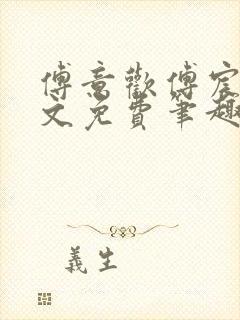 傅意歡傅宸
文免費筆趣
義生